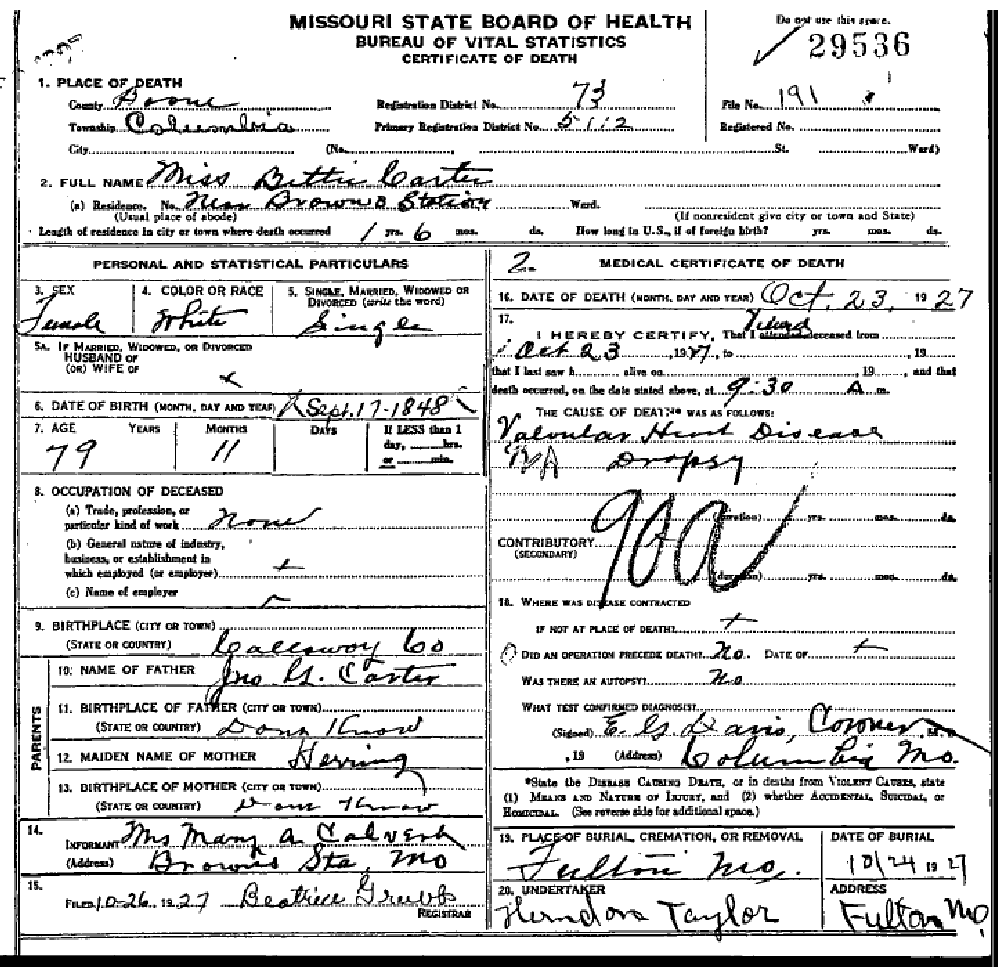 MISSOURI STATE BOARD OF HEALTH
BUREAU OF VITAL STATISTICS
CERTIFICATE OF DEATH
Do not use this space.
29536
1. PLACE OF DEATH
County Boone Registration District No. 73 File No. 191
Township Columbia Primary Registration District No. 5112 Registered No.
City (No. St. Ward)
2. FULL NAME Miss Bettie Carter
(a) Residence. No. Near Browns Station Ward.
(Usual place of abode) (If nonresident give city or town and State)
Length of residence in city or town where death occurred 1 yrs. 6 mos. ds. How long in U.S., if of foreign birth? yrs. mos. ds.
PERSONAL AND STATISTICAL PARTICULARS
3. SEX 4. COLOR OR RACE 5. SINGLE, MARRIED, WIDOWED OR
DIVORCED (write the word)
Female White Single
5A. IF MARRIED, WIDOWED, OR DIVORCED
HUSBAND OF
(OR) WIFE OF x
6. DATE OF BIRTH (MONTH, DAY AND YEAR) Sept. 17-1848
7. AGE YEARS MONTHS DAYS If LESS than 1
day, hrs.
or min.
79 11
8. OCCUPATION OF DECEASED
(a) Trade, profession, or
particular kind of work None
(b) General nature of industry,
business, or establishment in
which employed (or employer)
(c) Name of employer
9. BIRTHPLACE (CITY OR TOWN)
(STATE OR COUNTRY) Callaway Co
PARENTS
10. NAME OF FATHER Jno G. Carter
11. BIRTHPLACE OF FATHER (CITY OR TOWN)
(STATE OR COUNTRY) Dont Know
12. MAIDEN NAME OF MOTHER Herring
13. BIRTHPLACE OF MOTHER (CITY OR TOWN)
(STATE OR COUNTRY) Dont Know
14.
INFORMANT Mrs Mary A Calvert
(Address) Browns Sta, Mo
15.
FILED 10-26 1927 Beatrice Grubbs
REGISTRAR
2. MEDICAL CERTIFICATE OF DEATH
16. DATE OF DEATH (MONTH, DAY AND YEAR) Oct. 23, 1927
17. Viewed
I HEREBY CERTIFY, That I attended deceased from
Oct 23, 1927, to , 19
that I last saw h alive on , 19 , and that
death occurred, on the date stated above, at 9:30 A m.
THE CAUSE OF DEATH* WAS AS FOLLOWS:
Valvular Heart Disease
Dropsy
90a
(duration) yrs. mos. ds.
CONTRIBUTORY
(SECONDARY)
(duration) yrs. mos. ds.
18. WHERE WAS DISEASE CONTRACTED
IF NOT AT PLACE OF DEATH?
DID AN OPERATION PRECEDE DEATH? No. DATE OF
WAS THERE AN AUTOPSY? No
WHAT TEST CONFIRMED DIAGNOSIS?
(Signed) E. G. Davis, Coroner M.D.
, 19 (Address) Columbia Mo.
*State the DISEASE CAUSING DEATH, or in deaths from VIOLENT CAUSES, state
(1) MEANS AND NATURE OF INJURY, and (2) whether ACCIDENTAL, SUICIDAL, or
HOMICIDAL. (See reverse side for additional space.)
19. PLACE OF BURIAL, CREMATION, OR REMOVAL DATE OF BURIAL
Fulton Mo. 10/24 1927
20. UNDERTAKER ADDRESS
Herndon Taylor Fulton Mo.